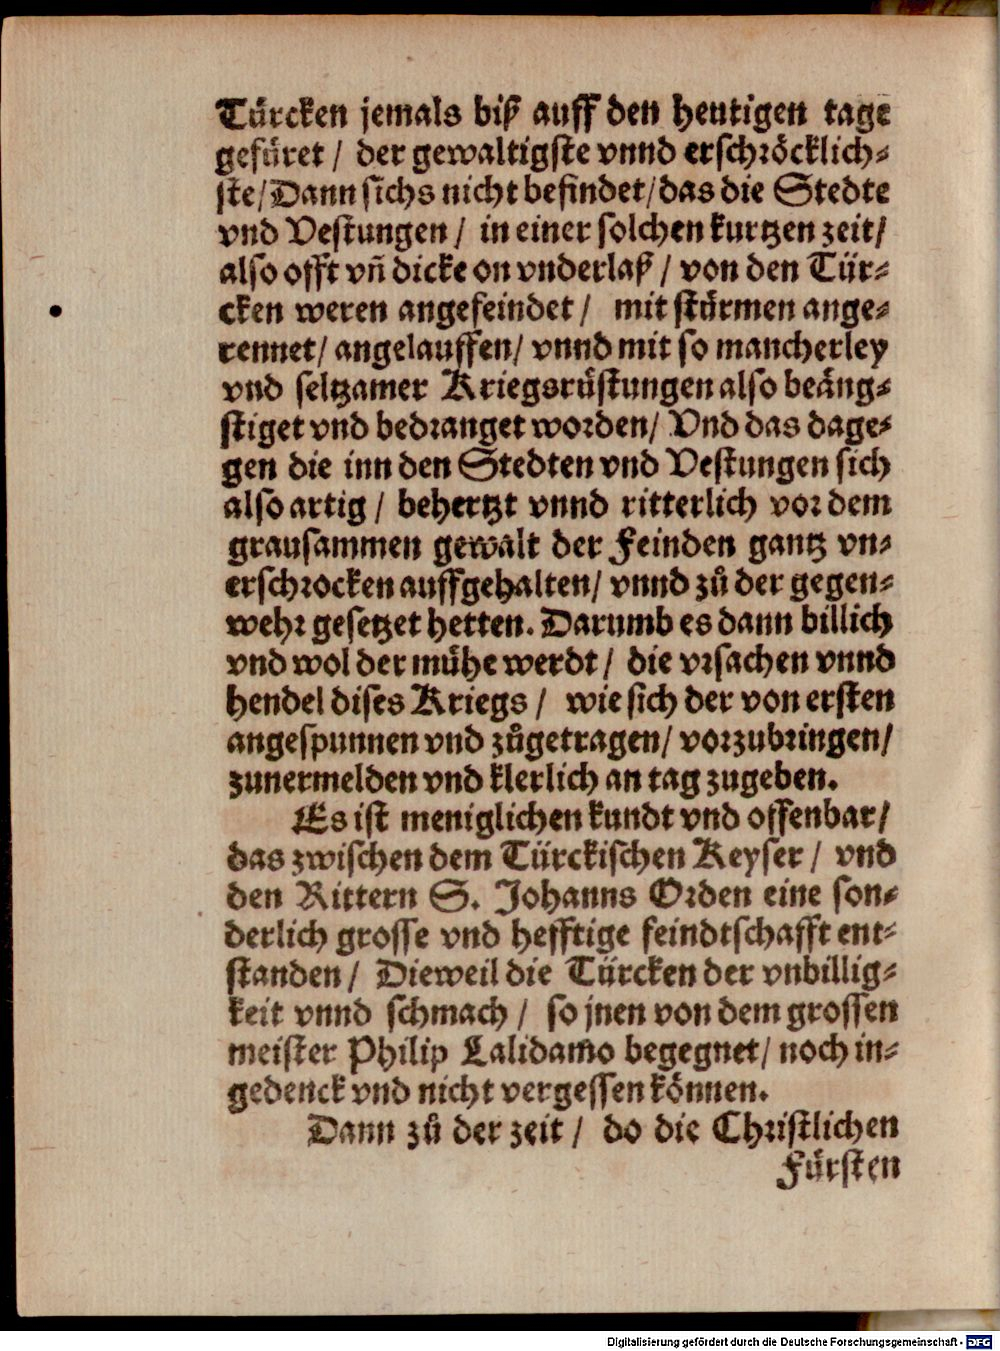 Tuͤrcken jemals biß auff den heutigen tage
gefuͤret / der gewaltigste vnnd erschroͤcklich⸗
ste / Dann sichs nicht befindet / das die Stedte
vnd Vestungen / in einer solchen kurtzen zeit /
also offt vn̄ dicke on vnderlaß / von den Tuͤr⸗
cken weren angefeindet / mit stuͤrmen ange⸗
rennet / angelauffen / vnnd mit so mancherley
vnd seltzamer Kriegsruͤstungen also beaͤng⸗
stiget vnd bedranget worden / Vnd das dage⸗
gen die inn den Stedten vnd Vestungen sich
also artig / behertzt vnnd ritterlich vor dem
grausammen gewalt der Feinden gantz vn⸗
erschrocken auffgehalten / vnnd zuͦ der gegen⸗
wehr gesetzet hetten. Darumb es dann billich
vnd wol der muͤhe werdt / die vrsachen vnnd
hendel dises Kriegs / wie sich der von ersten
angespunnen vnd zuͦgetragen / vorzubringen /
zunermelden vnd klerlich an tag zugeben.
Es ist meniglichen kundt vnd offenbar /
das zwischen dem Tuͤrckischen Keyser / vnd
den Rittern S. Johanns Orden eine son⸗
derlich grosse vnd hefftige feindtschafft ent⸗
standen / Dieweil die Tuͤrcken der vnbillig⸗
keit vnnd schmach / so jnen von dem grossen
meister Philip Lalidamo begegnet / noch in⸗
gedenck vnd nicht vergessen koͤnnen.
Dann zuͦ der zeit / do die Christlichen
Fuͤrsten
Digitalisierung gefördert durch die Deutsche Forschungsgemeinschaft - DFG